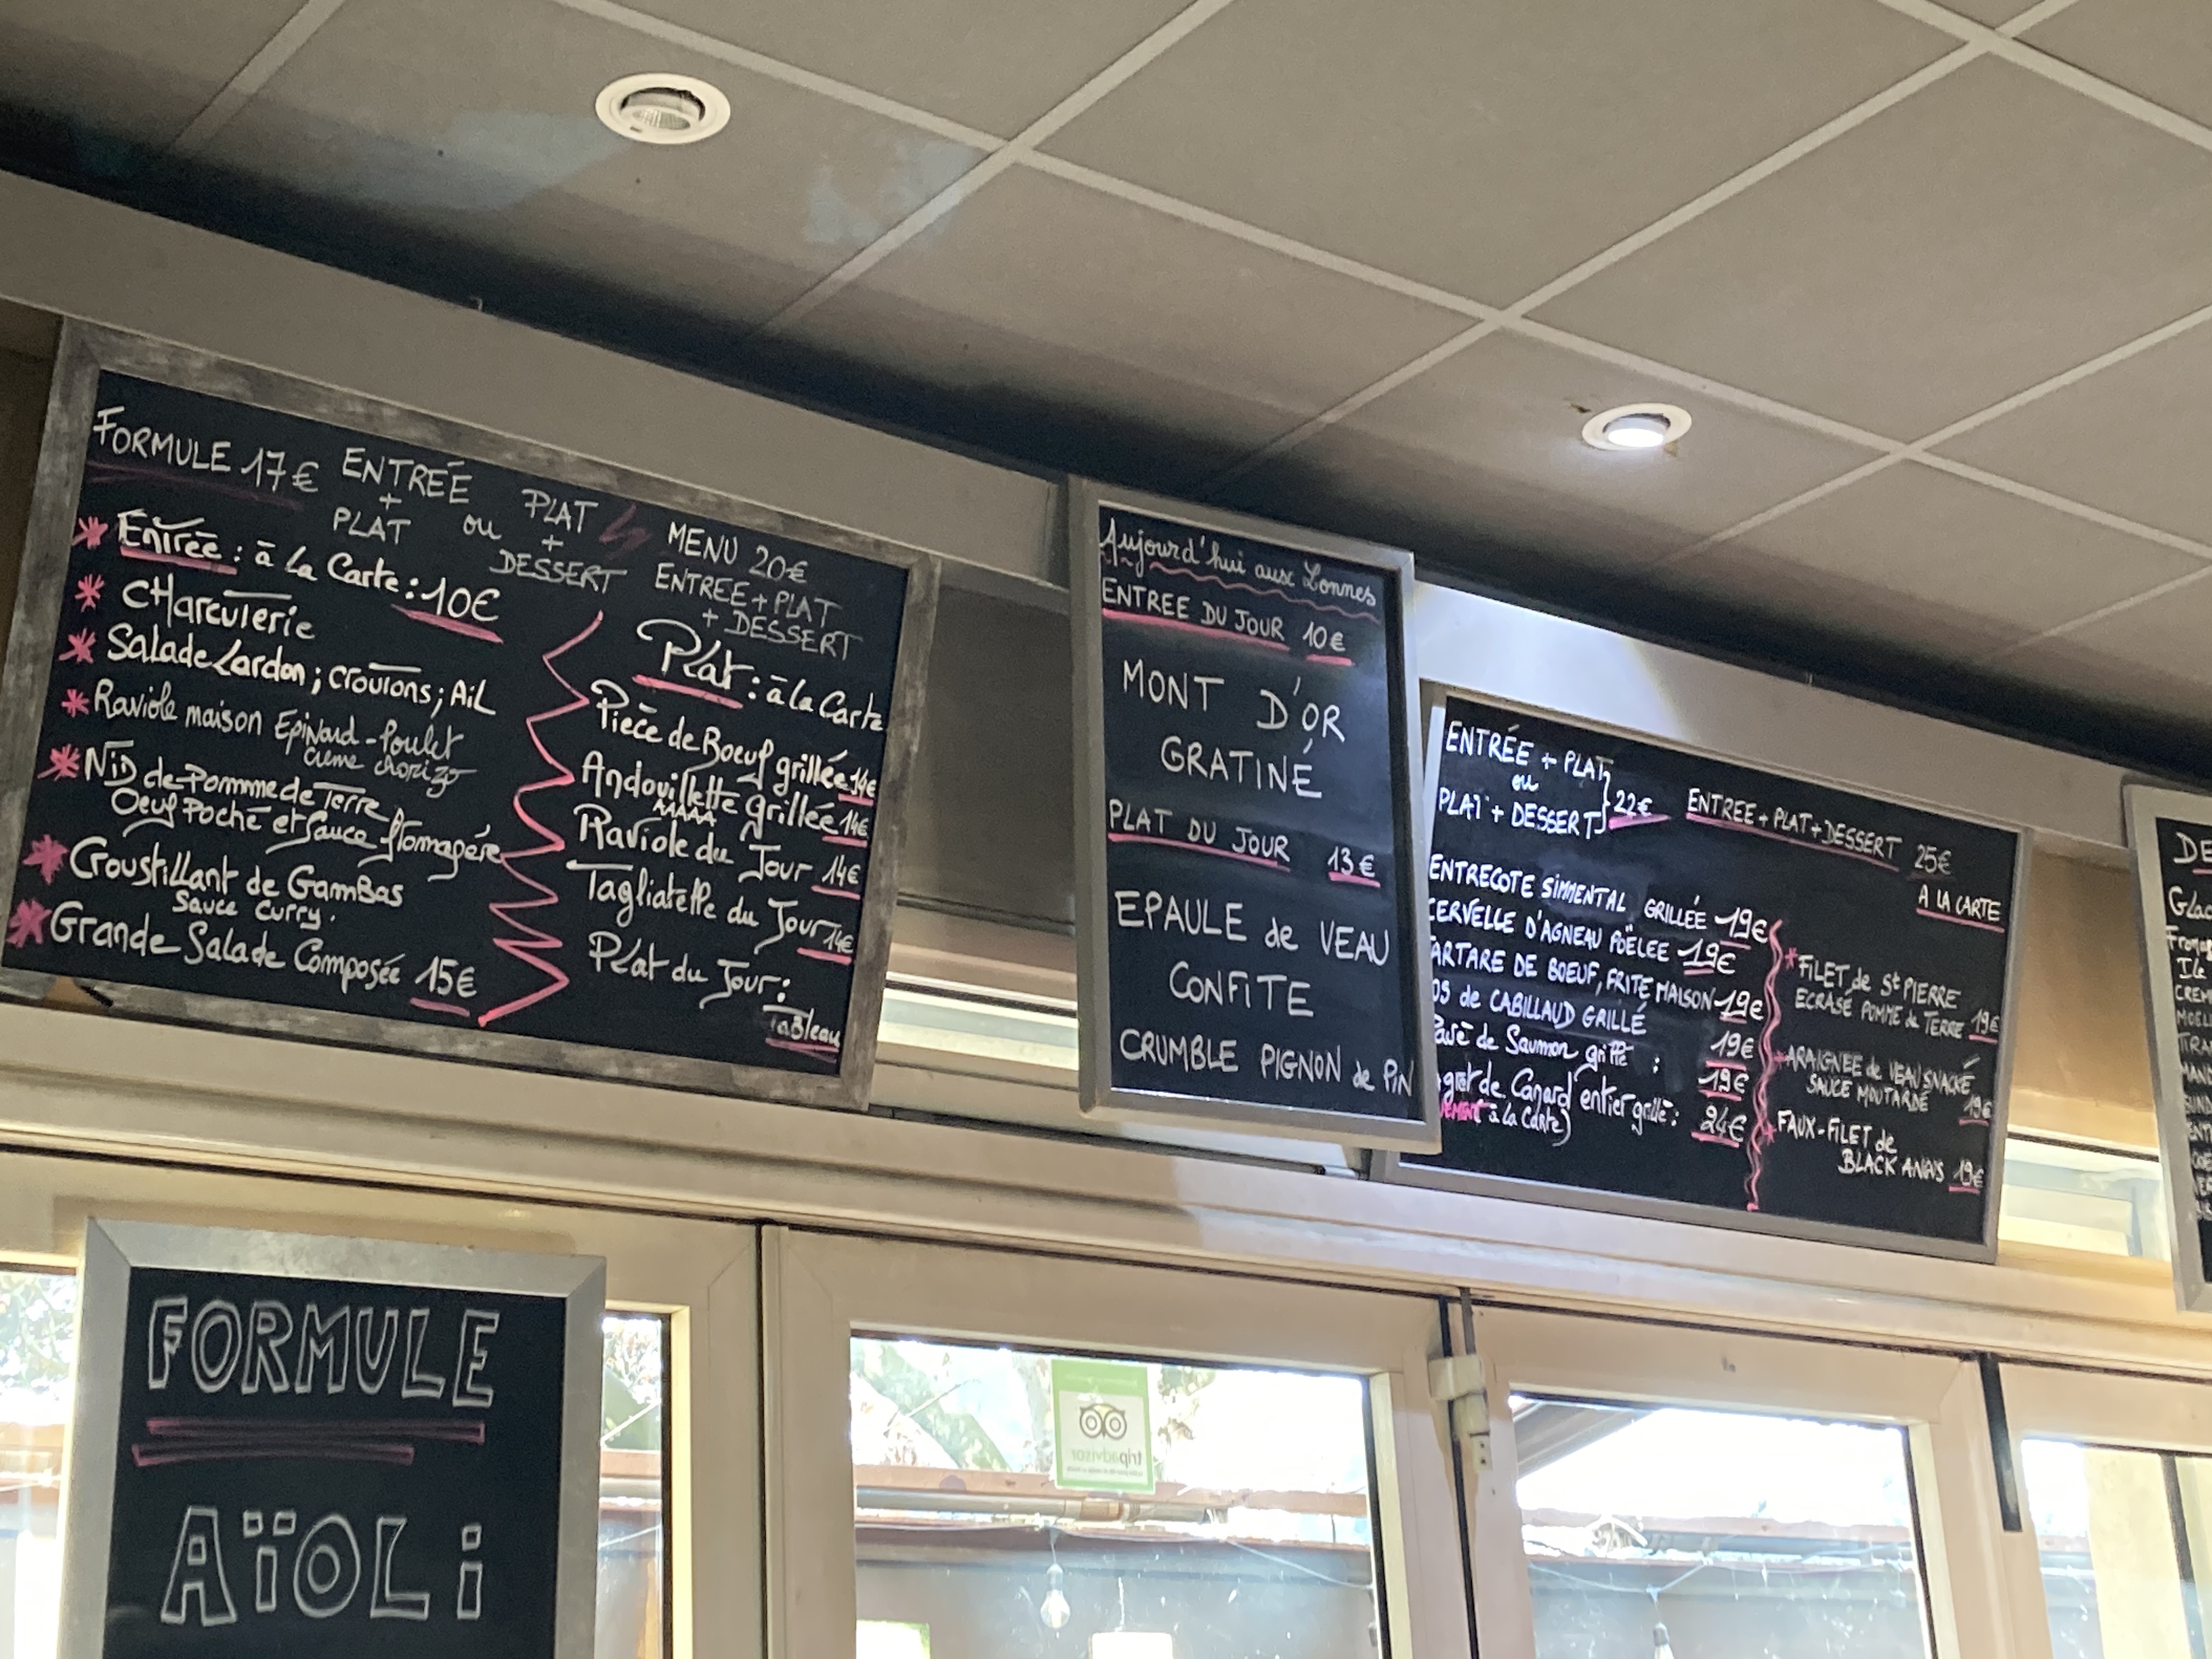 FORMULE 17€ ENTRÉE + PLAT ou PLAT + DESSERT
MENU 20€
ENTREE + PLAT
+ DESSERT
* Entrée : à la Carte : 10€
* CHarcuterie
* Salade Lardon ; croutons ; AiL
* Raviole maison Epinard - Poulet
Crème chorizo
* NiD de Pommme de Terre
Oeuf Poché et Sauce fromagére
* Croustillant de GamBas
Sauce Curry.
* Grande Salade Composée 15€
Plat : à la Carte
Pièce de Boeuf grillée 14€
Andouillette grillée 14€
AAAAA
Raviole du Jour 14€
Tagliatelle du Jour 14€
Plat du Jour :
TaBleau
Aujourd'hui aux Lonnes
ENTREE DU JOUR 10€
MONT D'OR
GRATINÉ
PLAT DU JOUR 13€
EPAULE de VEAU
CONFiTE
CRUMBLE PIGNON de PiN
ENTRÉE + PLAT
ou
PLAT + DESSERT
22€
ENTREE + PLAT + DESSERT 25€
A LA CARTE
ENTRECOTE SIMMENTAL GRILLÉE 19€
CERVELLE D'AGNEAU POËLEE 19€
TARTARE DE BOEUF, FRITE MAISON 19€
DOS de CABILLAUD GRILLÉ 19€
Pavé de Saumon grillé : 19€
gret de Canard entier grillé : 24€
à la Carte)
* FILET de St PIERRE
ECRASÉ POMME de TERRE 19€
* ARAIGNEE de VEAU SNACKÉ
SAUCE MOUTARDE 19€
* FAUX-FILET de
BLACK ANGUS 19€
FORMULE
AÏOLi
tripadvisor